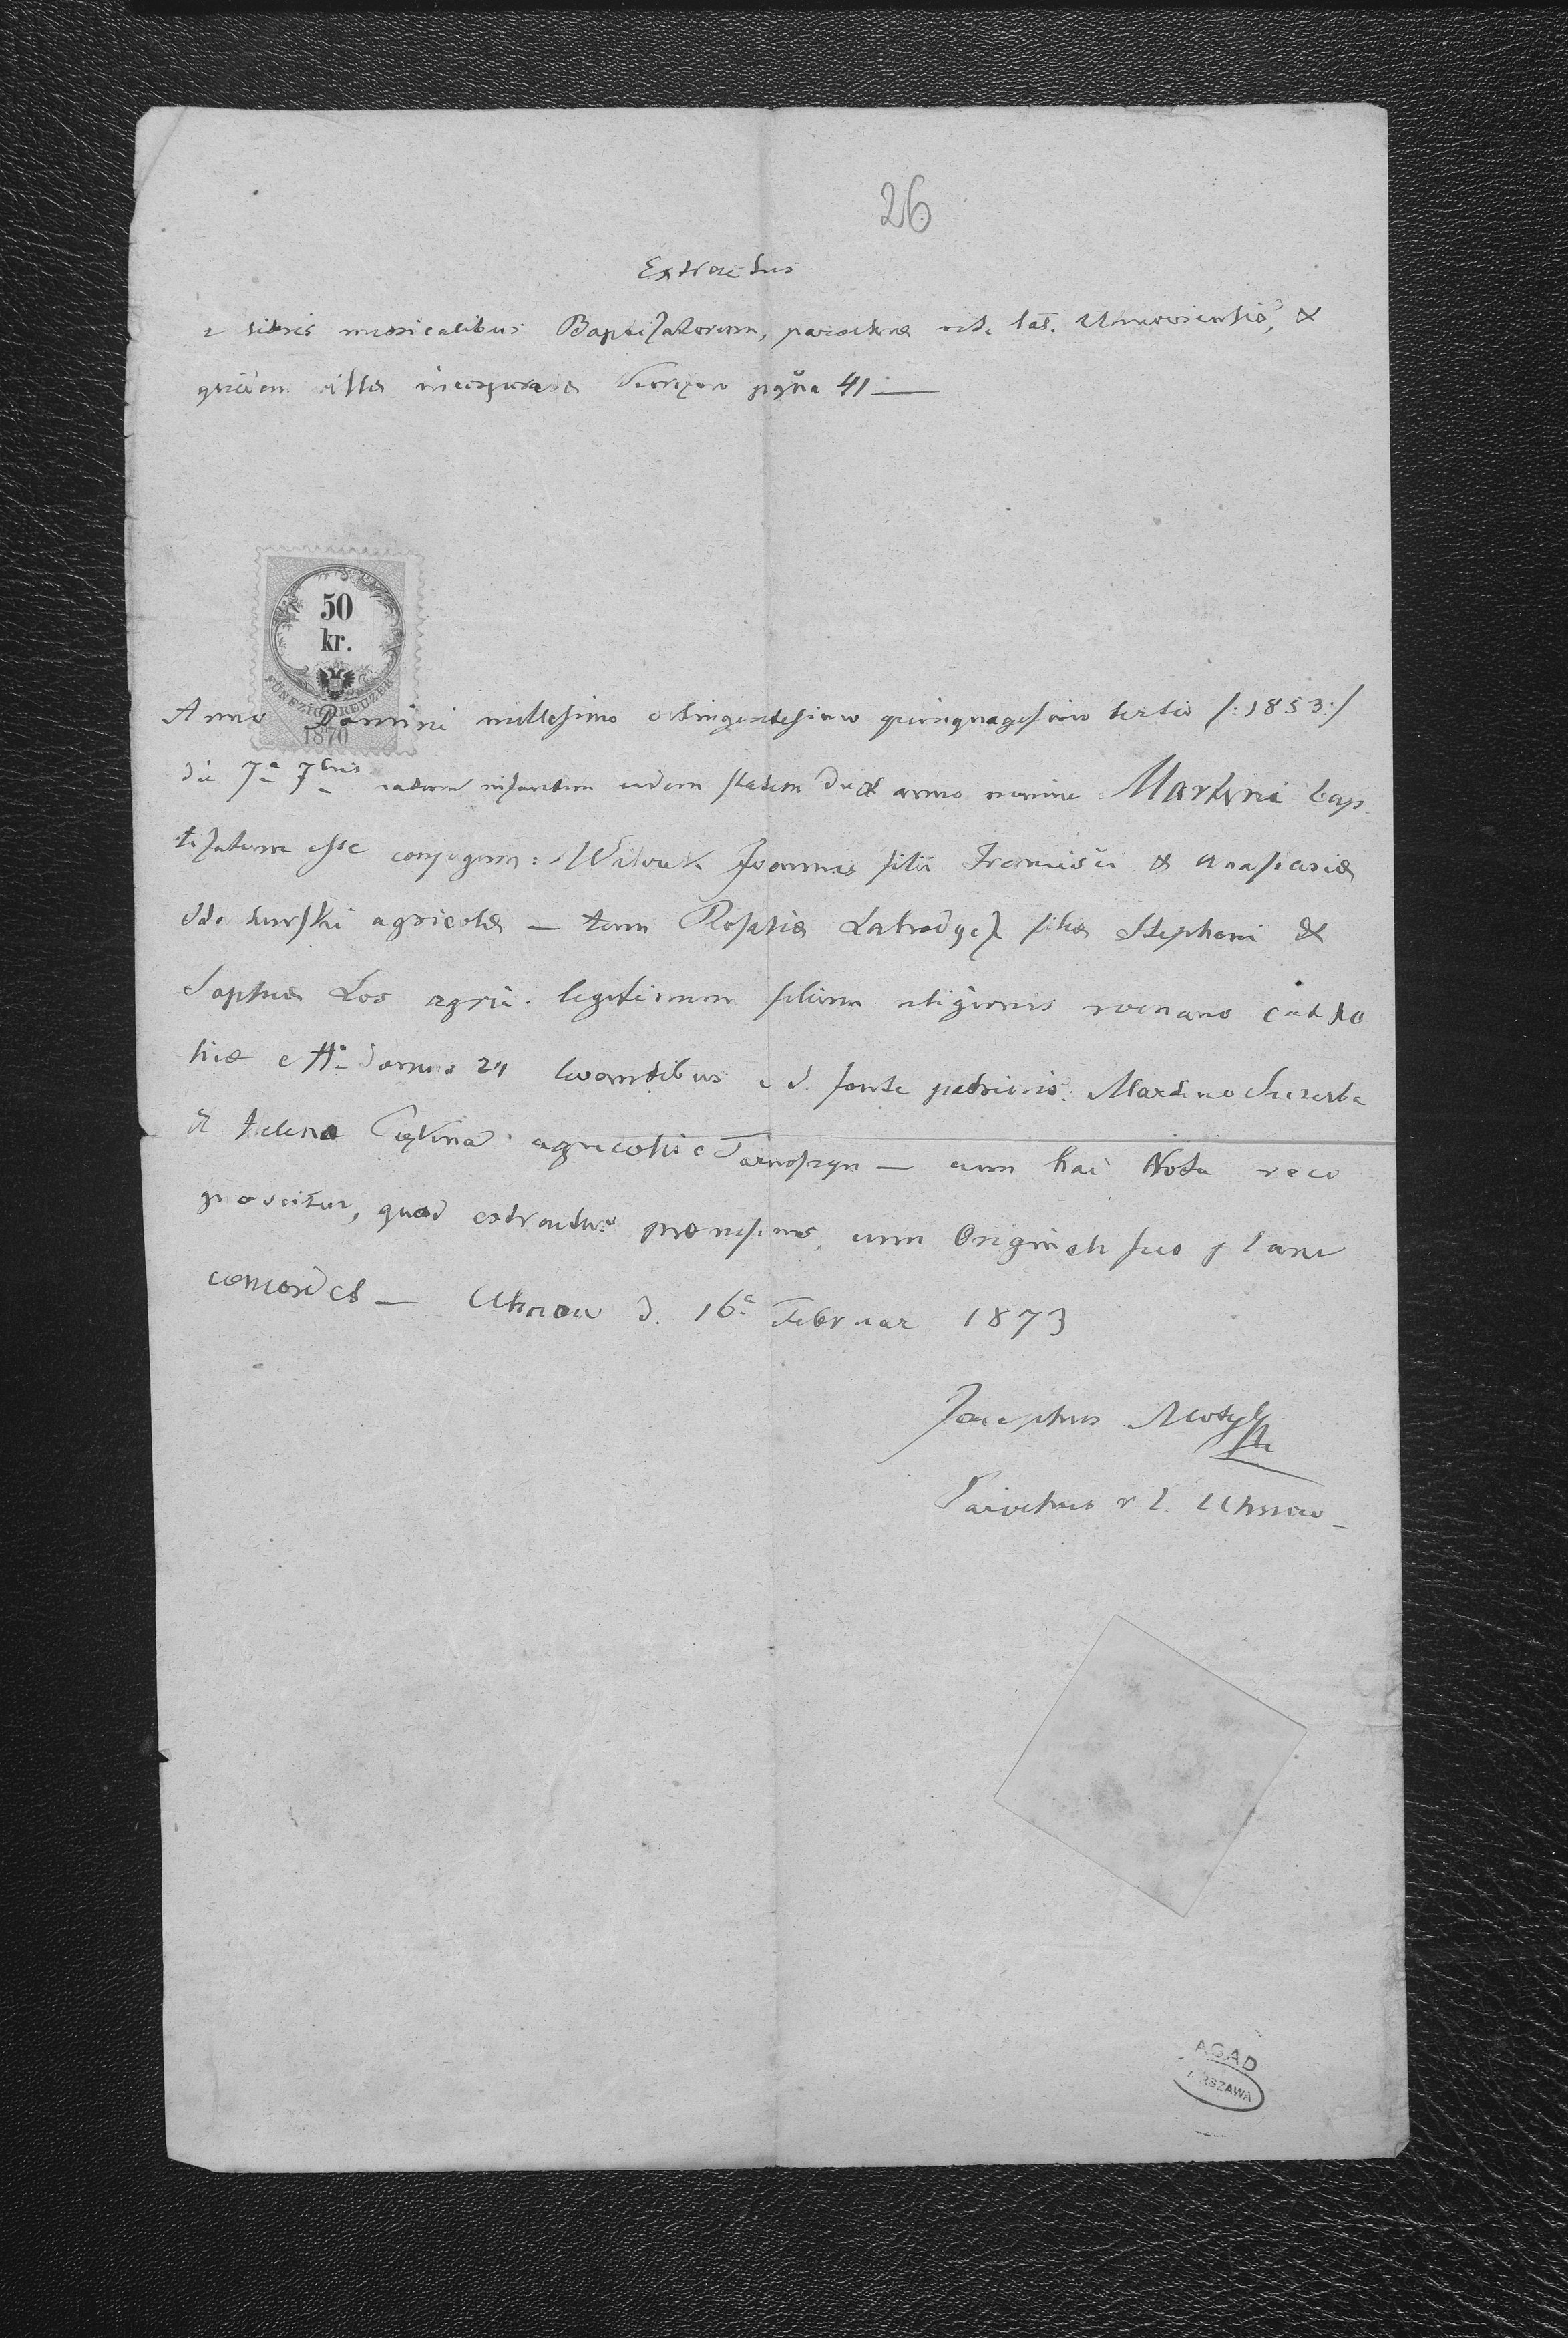 26
Extractus
e libris metricalibus Baptizatorum, parochiae rit. lat. Uhnoviensis, &
quidem villae incorporatae pgna 41 —
50
kr.
FÜNFZIG KREUZER
1870
Anno Domini millesimo octingentesimo quinquagesimo tertio /: 1853 :/
die 7a 7bris natum infantem eadem statim die & anno nomine Martini bap
tizatum esse conjugum: Joannis filii Francisci & Anastasiae
agricolae — tum Rosaliae filiae Stephani &
Sophiae Los agric. legitimum filium religionis romano catho
licae e No domus 24 levantibus e s. fonte patrinis: Martino
& Helena agricolis e Tarnoszyn — cum hac Nota reco
gnoscitur, quod extractus praemissus, cum Originali suo
concordet — Uhnow d. 16a Februar 1873
Josephus Motyl
Parochus r l. Uhnow —
AGAD
WARSZAWA